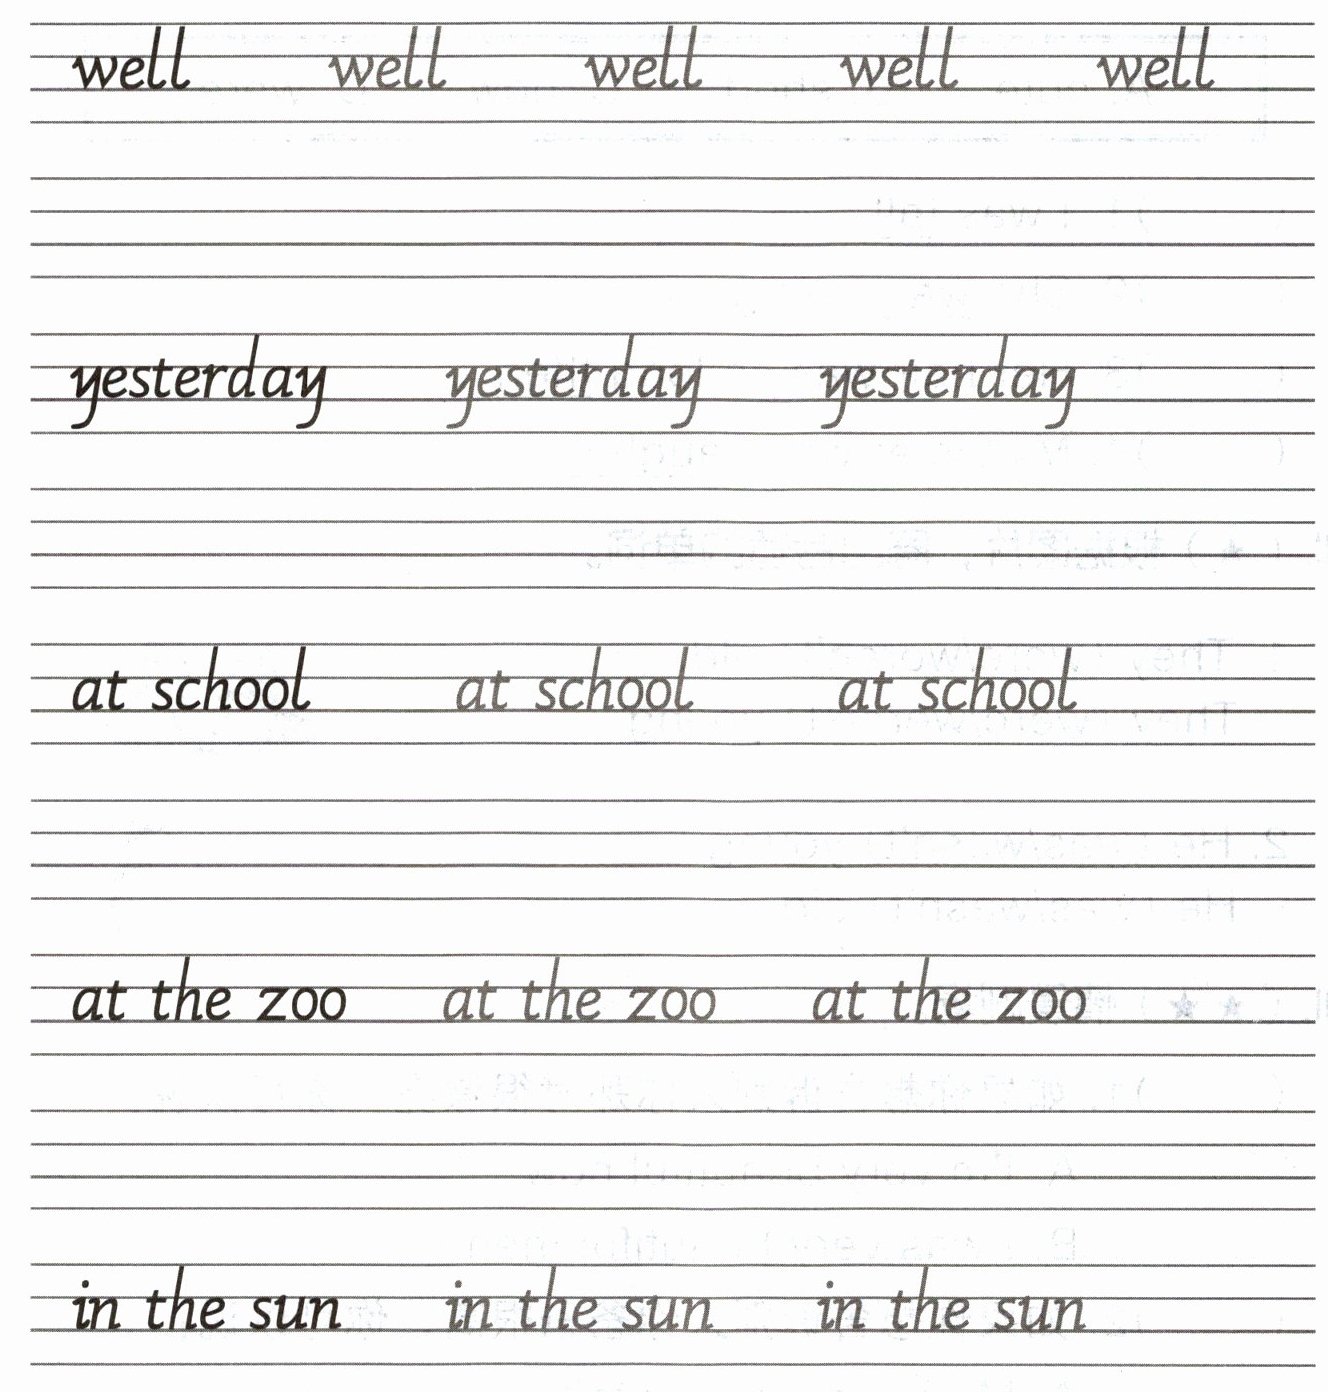 well well well well well
yesterday yesterday yesterday
at school at school at school
at the zoo at the zoo at the zoo
in the sun in the sun in the sun